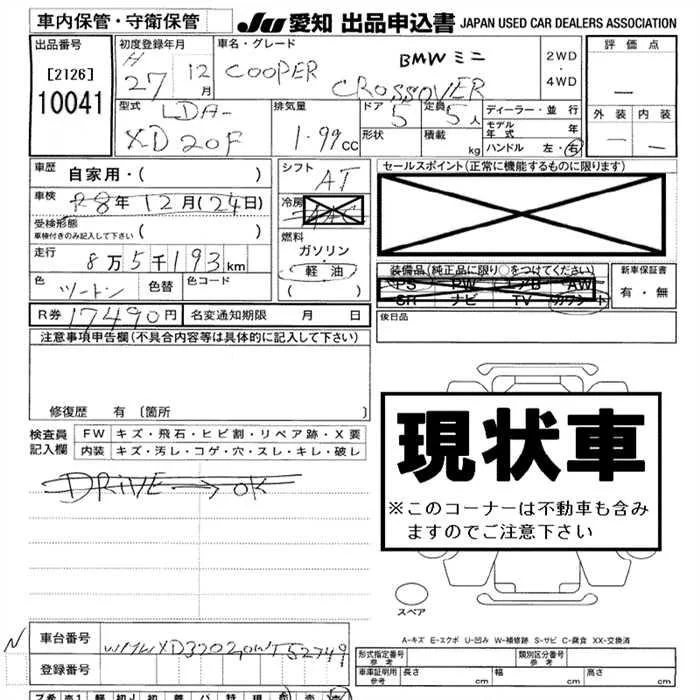 車内保管・守衛保管 JU 愛知 出品申込書 JAPAN USED CAR DEALERS ASSOCIATION
出品番号 初度登録年月 車名・グレード 評価点
[2126] H 27 12月 COOPER BMWミニ 2WD・4WD —
10041 CROSSOVER 外装 内装
型式 排気量 ドア 定員 ディーラー・並行 — —
LDA- 5 5人 モデル年式 年
XD20F 1.99cc 形状 積載 kg ハンドル 左・右
車歴 自家用・( ) シフト AT セールスポイント(正常に機能するものに限ります)
車検 R8年12月(24日) 冷房 AAC
受検形態
車検付きのみ記入して下さい ( )
燃料
ガソリン
走行 8万5千193km 軽油 装備品(純正品に限り○をつけてください) 新車保証書
( ) PS PW エアB AW 有・無
色 ツートン 色替 色コード SR ナビ TV カワシート
R券 17490円 名変通知期限 月 日 後日品
注意事項申告欄(不具合内容等は具体的に記入して下さい)
修復歴 有 [箇所 ]
検査員 FW キズ・飛石・ヒビ割・リペア跡・X要
記入欄 内装 キズ・汚レ・コゲ・穴・スレ・キレ・破レ
DRIVE→OK
現状車
※このコーナーは不動車も含み
ますのでご注意下さい
スペア
A-キズ E-エクボ U-凹み W-補修跡 S-サビ C-腐食 XX-交換済
N 車台番号
登録番号
形式指定番号 参考 類別区分番号 参考
車庫証明用 参考 長さ cm 幅 cm 高さ cm